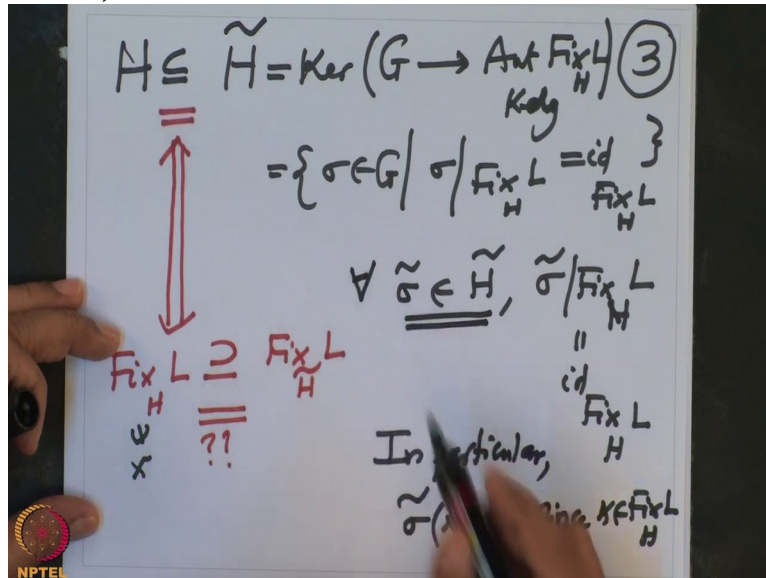 H ⊆ H̃ = Ker (G ⟶ Aut Fix_H L) ③
K-alg
= { σ ∈ G | σ|Fix_H L = id_Fix_H L }
∀ σ̃ ∈ H̃, σ̃|Fix_H L
=
id Fix_H L
Fix_H L ⊇ Fix_H̃ L
??
x
In particular,
σ̃( x ∈ Fix_H L
NPTEL